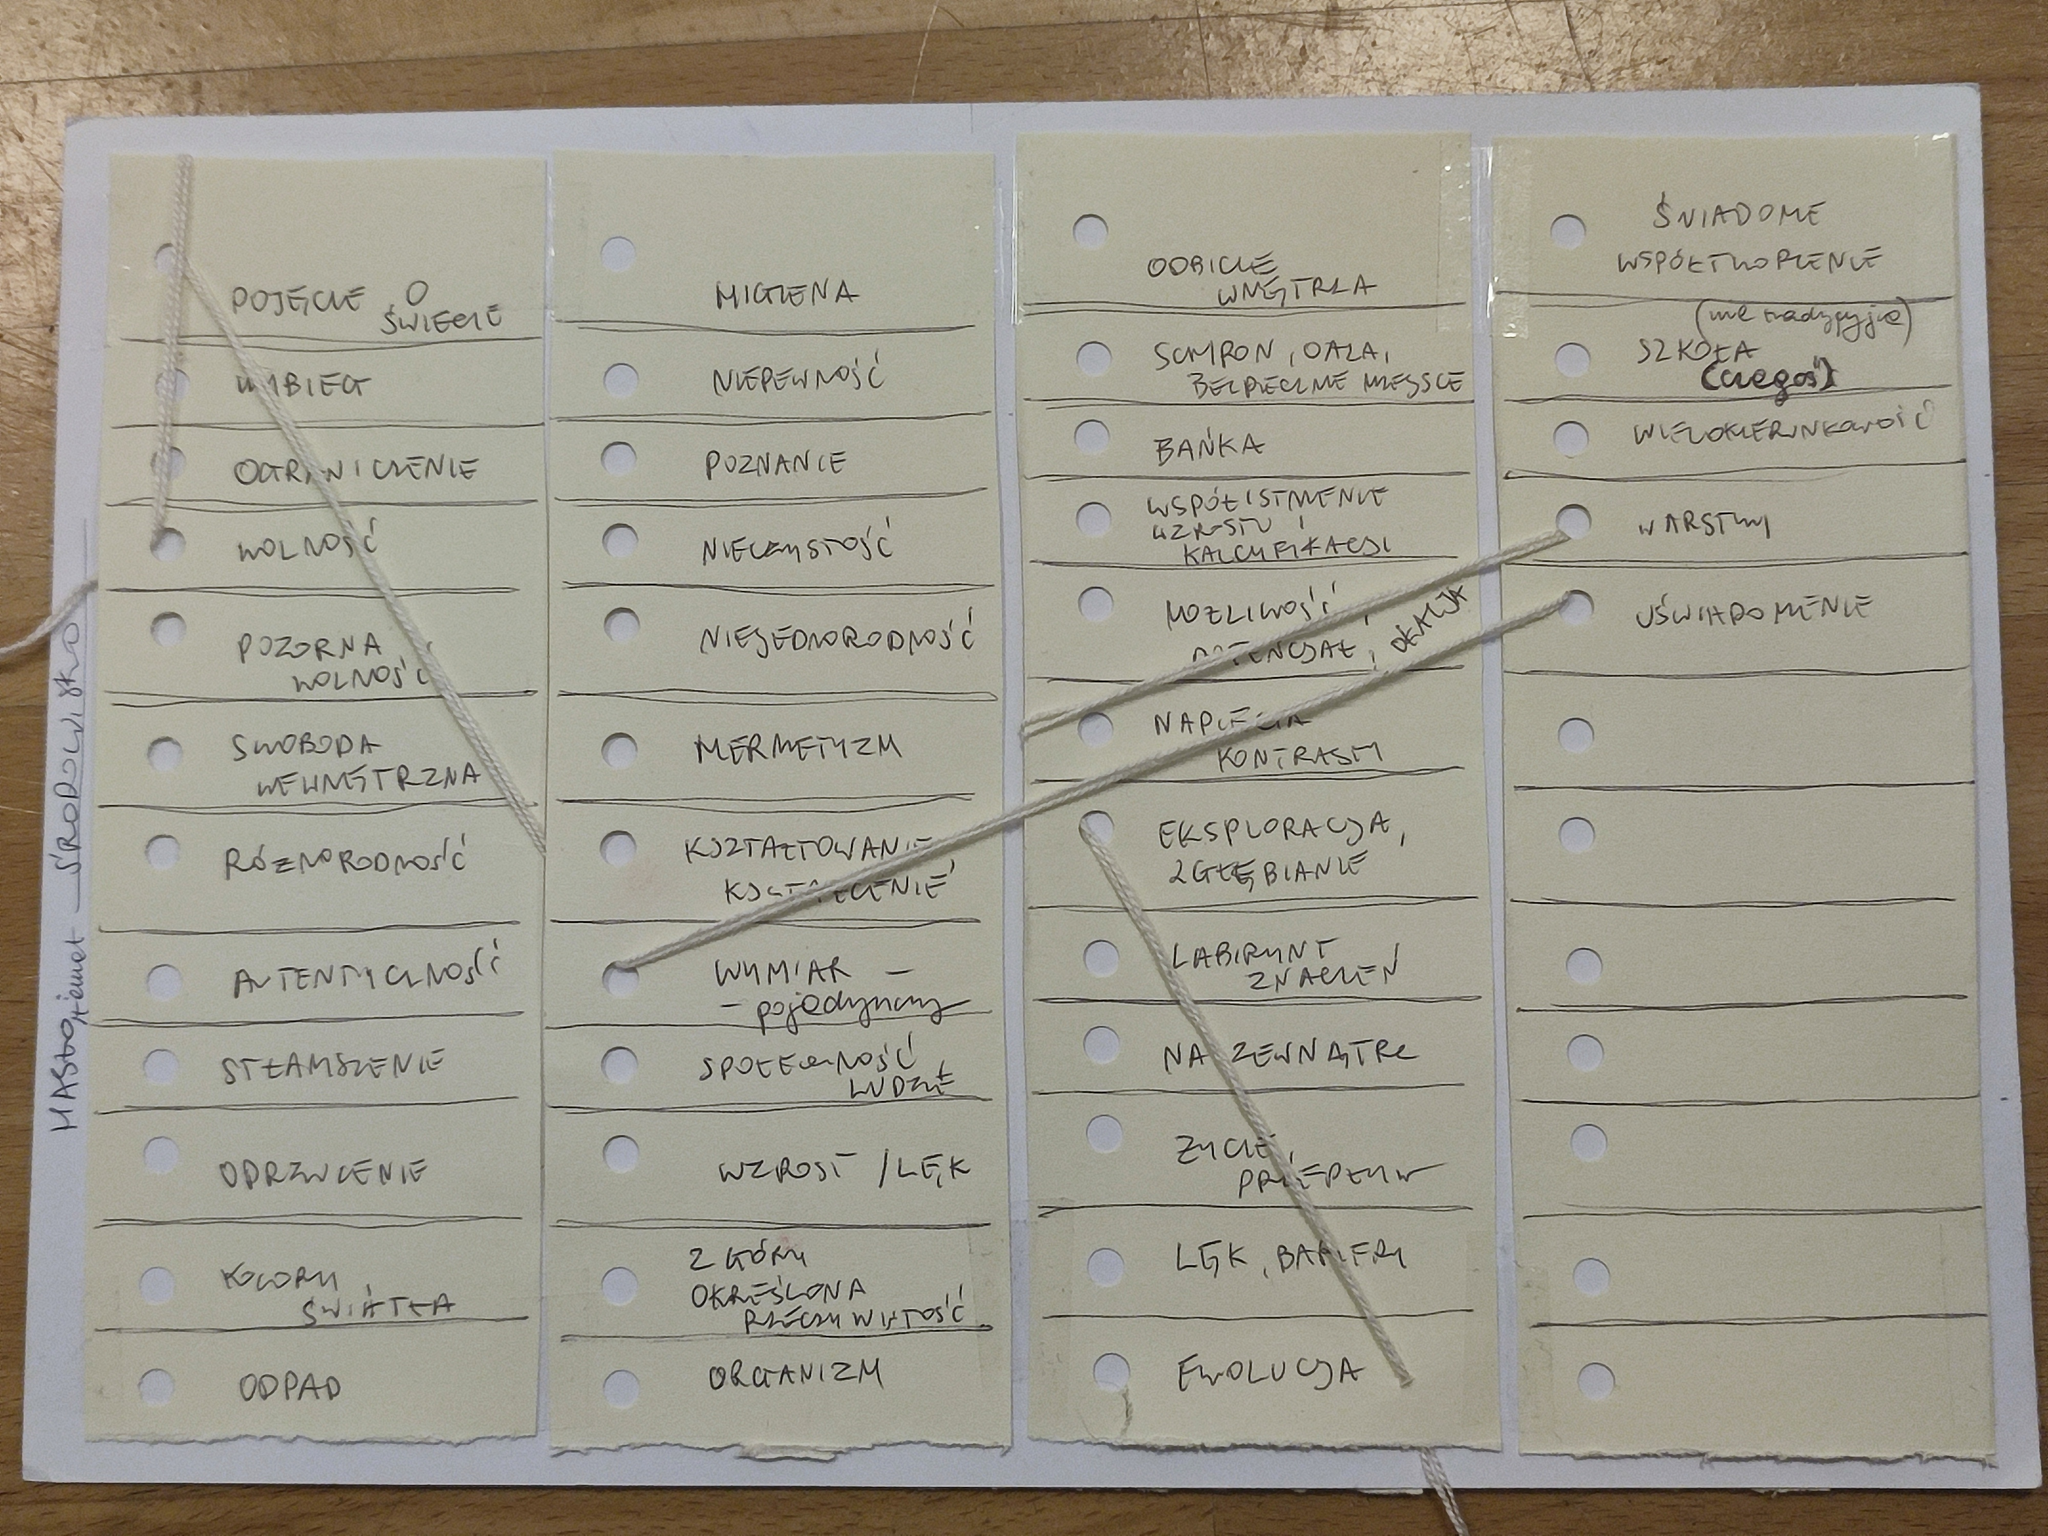 POJĘCIE O
ŚWIECIE
WYBIEG
OGRANICZENIE
WOLNOŚĆ
POZORNA
WOLNOŚĆ
SWOBODA
WEWNĘTRZNA
RÓŻNORODNOŚĆ
AUTENTYCZNOŚĆ
STŁAMSZENIE
ODRZUCENIE
KOLORY
ŚWIATŁA
ODPAD
HIGIENA
NIEPEWNOŚĆ
POZNANIE
NIECZYSTOŚĆ
NIEJEDNORODNOŚĆ
HERMETYZM
KSZTAŁTOWANIE
KSZTAŁCENIE
WYMIAR –
– pojedynczy
SPOŁECZNOŚĆ
LUDZIE
WZROST / LĘK
Z GÓRY
OKREŚLONA
RZECZYWISTOŚĆ
ORGANIZM
ODBICIE
WNĘTRZA
SCHRON, OAZA,
BEZPIECZNE MIEJSCE
BAŃKA
WSPÓŁISTNIENIE
WZROSTU I
KALCYFIKACJI
MOŻLIWOŚĆ
POTENCJAŁ,
NAPIĘCIA
KONTRASTY
EKSPLORACJA,
ZGŁĘBIANIE
LABIRYNT
ZNACZEŃ
NA ZEWNĄTRZ
ŻYCIE,
PRZEPŁYW
LĘK, BARIERY
EWOLUCJA
ŚWIADOME
WSPÓŁTWORZENIE
SZKOŁA
(czegoś)
WIELOKIERUNKOWOŚĆ
WARSTWY
UŚWIADOMIENIE
ŚRODOWISKO